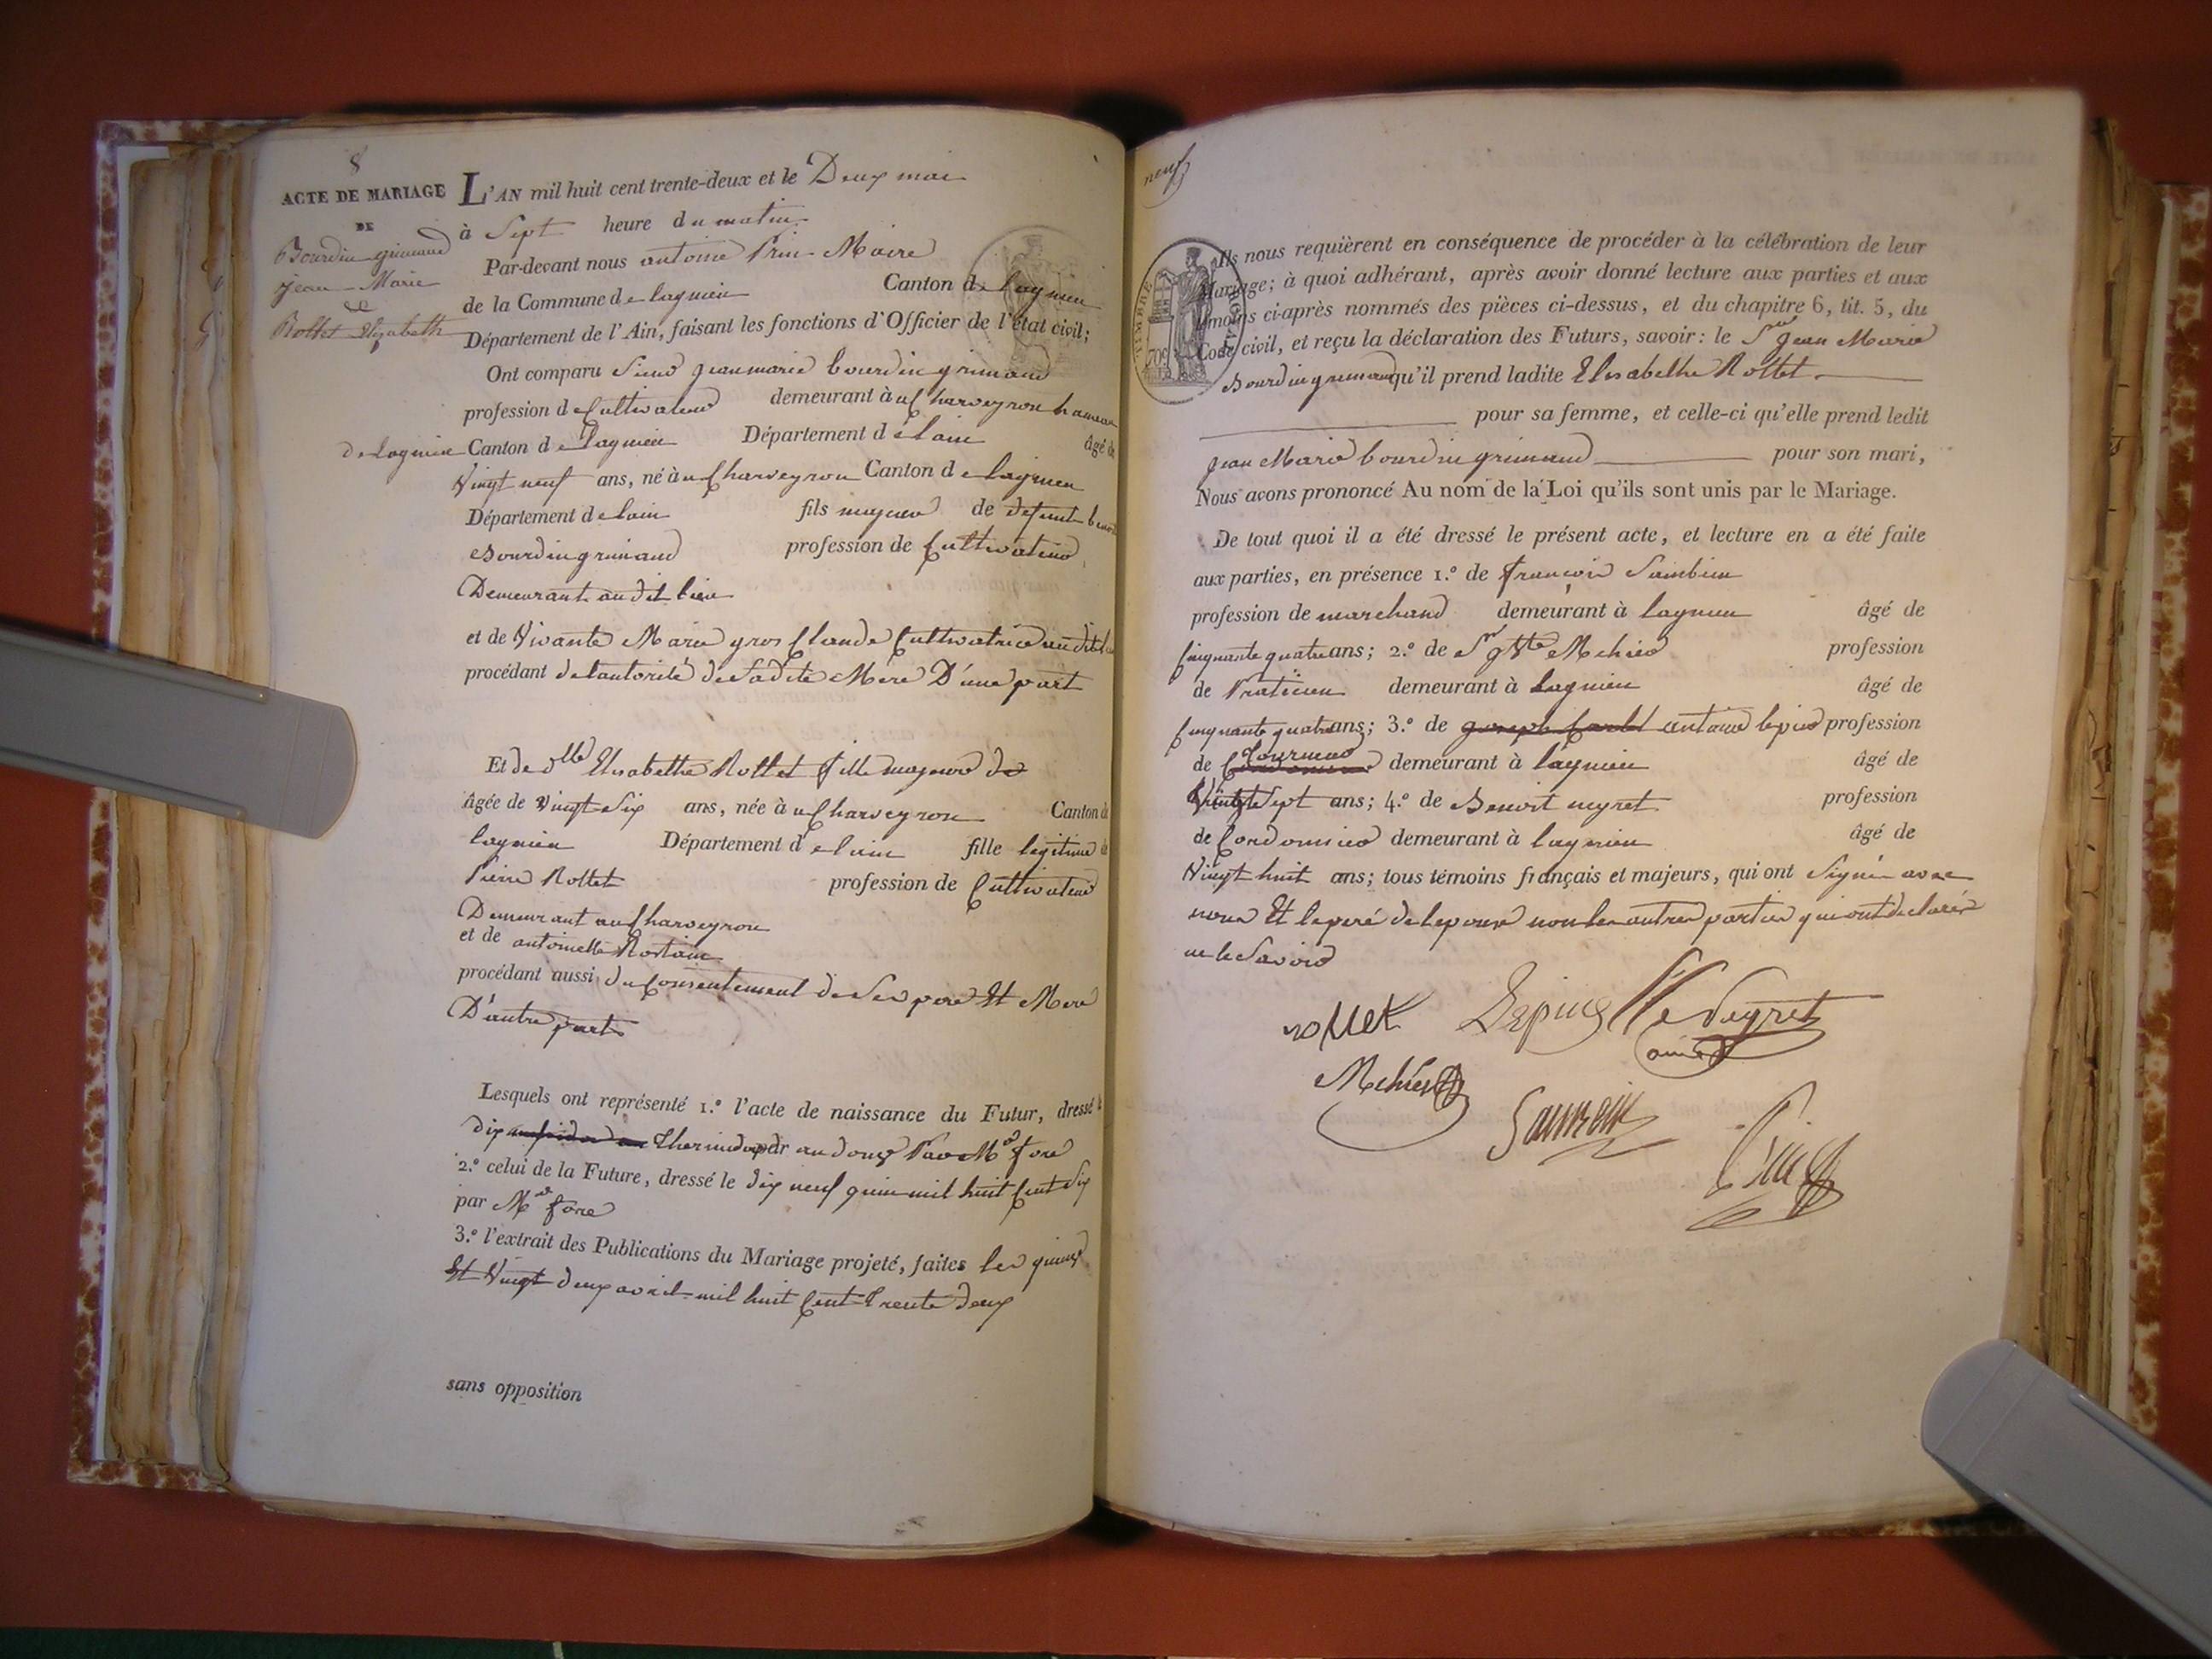 8
ACTE DE MARIAGE
DE
Bourdin grimaud
jean Marie
et
Rollet Elizabeth
L'AN mil huit cent trente-deux et le Deux mai
à Sept heure du matin
Par-devant nous antoine Prin Maire
de la Commune de lagnieu Canton de lagnieu
Département de l'Ain, faisant les fonctions d'Officier de l'état civil;
Ont comparu Sieur jean marie bourdin grimaud
profession de Cultivateur demeurant à au Charveyron hameau
de lagnieu Canton de lagnieu Département de lain âgé de
Vingt neuf ans, né à au Charveyron Canton de lagnieu
Département de lain fils majeur de defunt benoit
Bourdin grimaud profession de Cultivateur
Demeurant audit lieu
et de Vivante Marie gros Claude Cultivatrice audit lieu
procédant de lautorité de Sadite Mère D'une part
Et de dlle Elisabethe Rollet fille majeure de
âgée de vingt Six ans, née à au Charveyron Canton de
lagnieu Département de lain fille legitime de
Pierre Rollet profession de Cultivateur
Demeurant au Charveyron
et de antoinette Rostain
procédant aussi du Consentement de Ses pere Et Mere
D'autre part
Lesquels ont représenté 1.º l'acte de naissance du Futur, dressé le
dix thermidor an douze Par Mr fore
2.º celui de la Future, dressé le dix neuf juin mil huit Cent Six
par Mr fore
3.º l'extrait des Publications du Mariage projeté, faites les quinze
Et Vingt deux avril mil huit Cent Trente deux
sans opposition
neuf
TIMBRE ROYAL
70c
Ils nous requièrent en conséquence de procéder à la célébration de leur
Mariage; à quoi adhérant, après avoir donné lecture aux parties et aux
témoins ci-après nommés des pièces ci-dessus, et du chapitre 6, tit. 5, du
Code civil, et reçu la déclaration des Futurs, savoir: le Sr Jean Marie
Bourdin grimaud qu'il prend ladite Elisabethe Rollet
pour sa femme, et celle-ci qu'elle prend ledit
Jean Marie bourdin grimaud pour son mari,
Nous avons prononcé Au nom de la Loi qu'ils sont unis par le Mariage.
De tout quoi il a été dressé le présent acte, et lecture en a été faite
aux parties, en présence 1.º de françois
profession de marchand demeurant à lagnieu âgé de
Cinquante quatre ans; 2.º de Sr Mehier profession
de Praticien demeurant à Lagnieu âgé de
Cinquante quatre ans; 3.º de antoine lepine profession
de Tourneur demeurant à lagnieu âgé de
Vingt Sept ans; 4.º de Benoit neyret profession
de Cordonnier demeurant à lagnieu âgé de
Vingt huit ans; tous témoins français et majeurs, qui ont Signé avec
nous Et le pere de lepouse non les autres parties qui ont declarés
ne le Savoir
rollet Lepine Neyret
ainé
Mehier
Prin